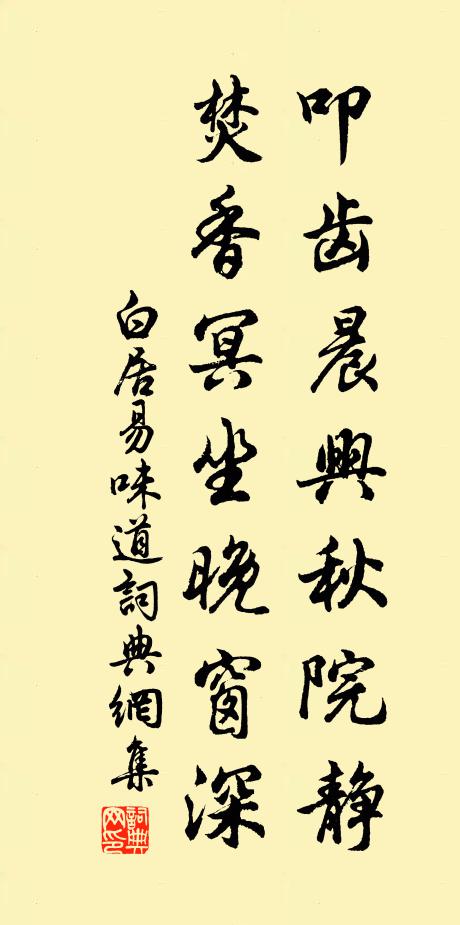 叩齿晨興秋院静
焚香冥坐晚窗深
白居易味道詞典網集
詞典网印